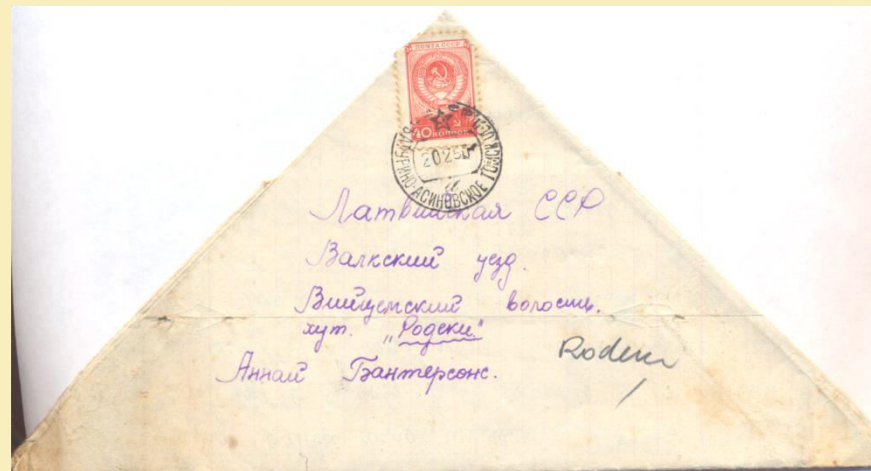 ПОЧТА СССР
40 КОПЕЕК
20250
АСИНОВСКОЕ ТОМСК. ОБЛ.
Латвийская ССР
Валкский уезд.
Вийцемский волость.
хут. „Родеки"
Rodeki
Аннай Бантерсонс.